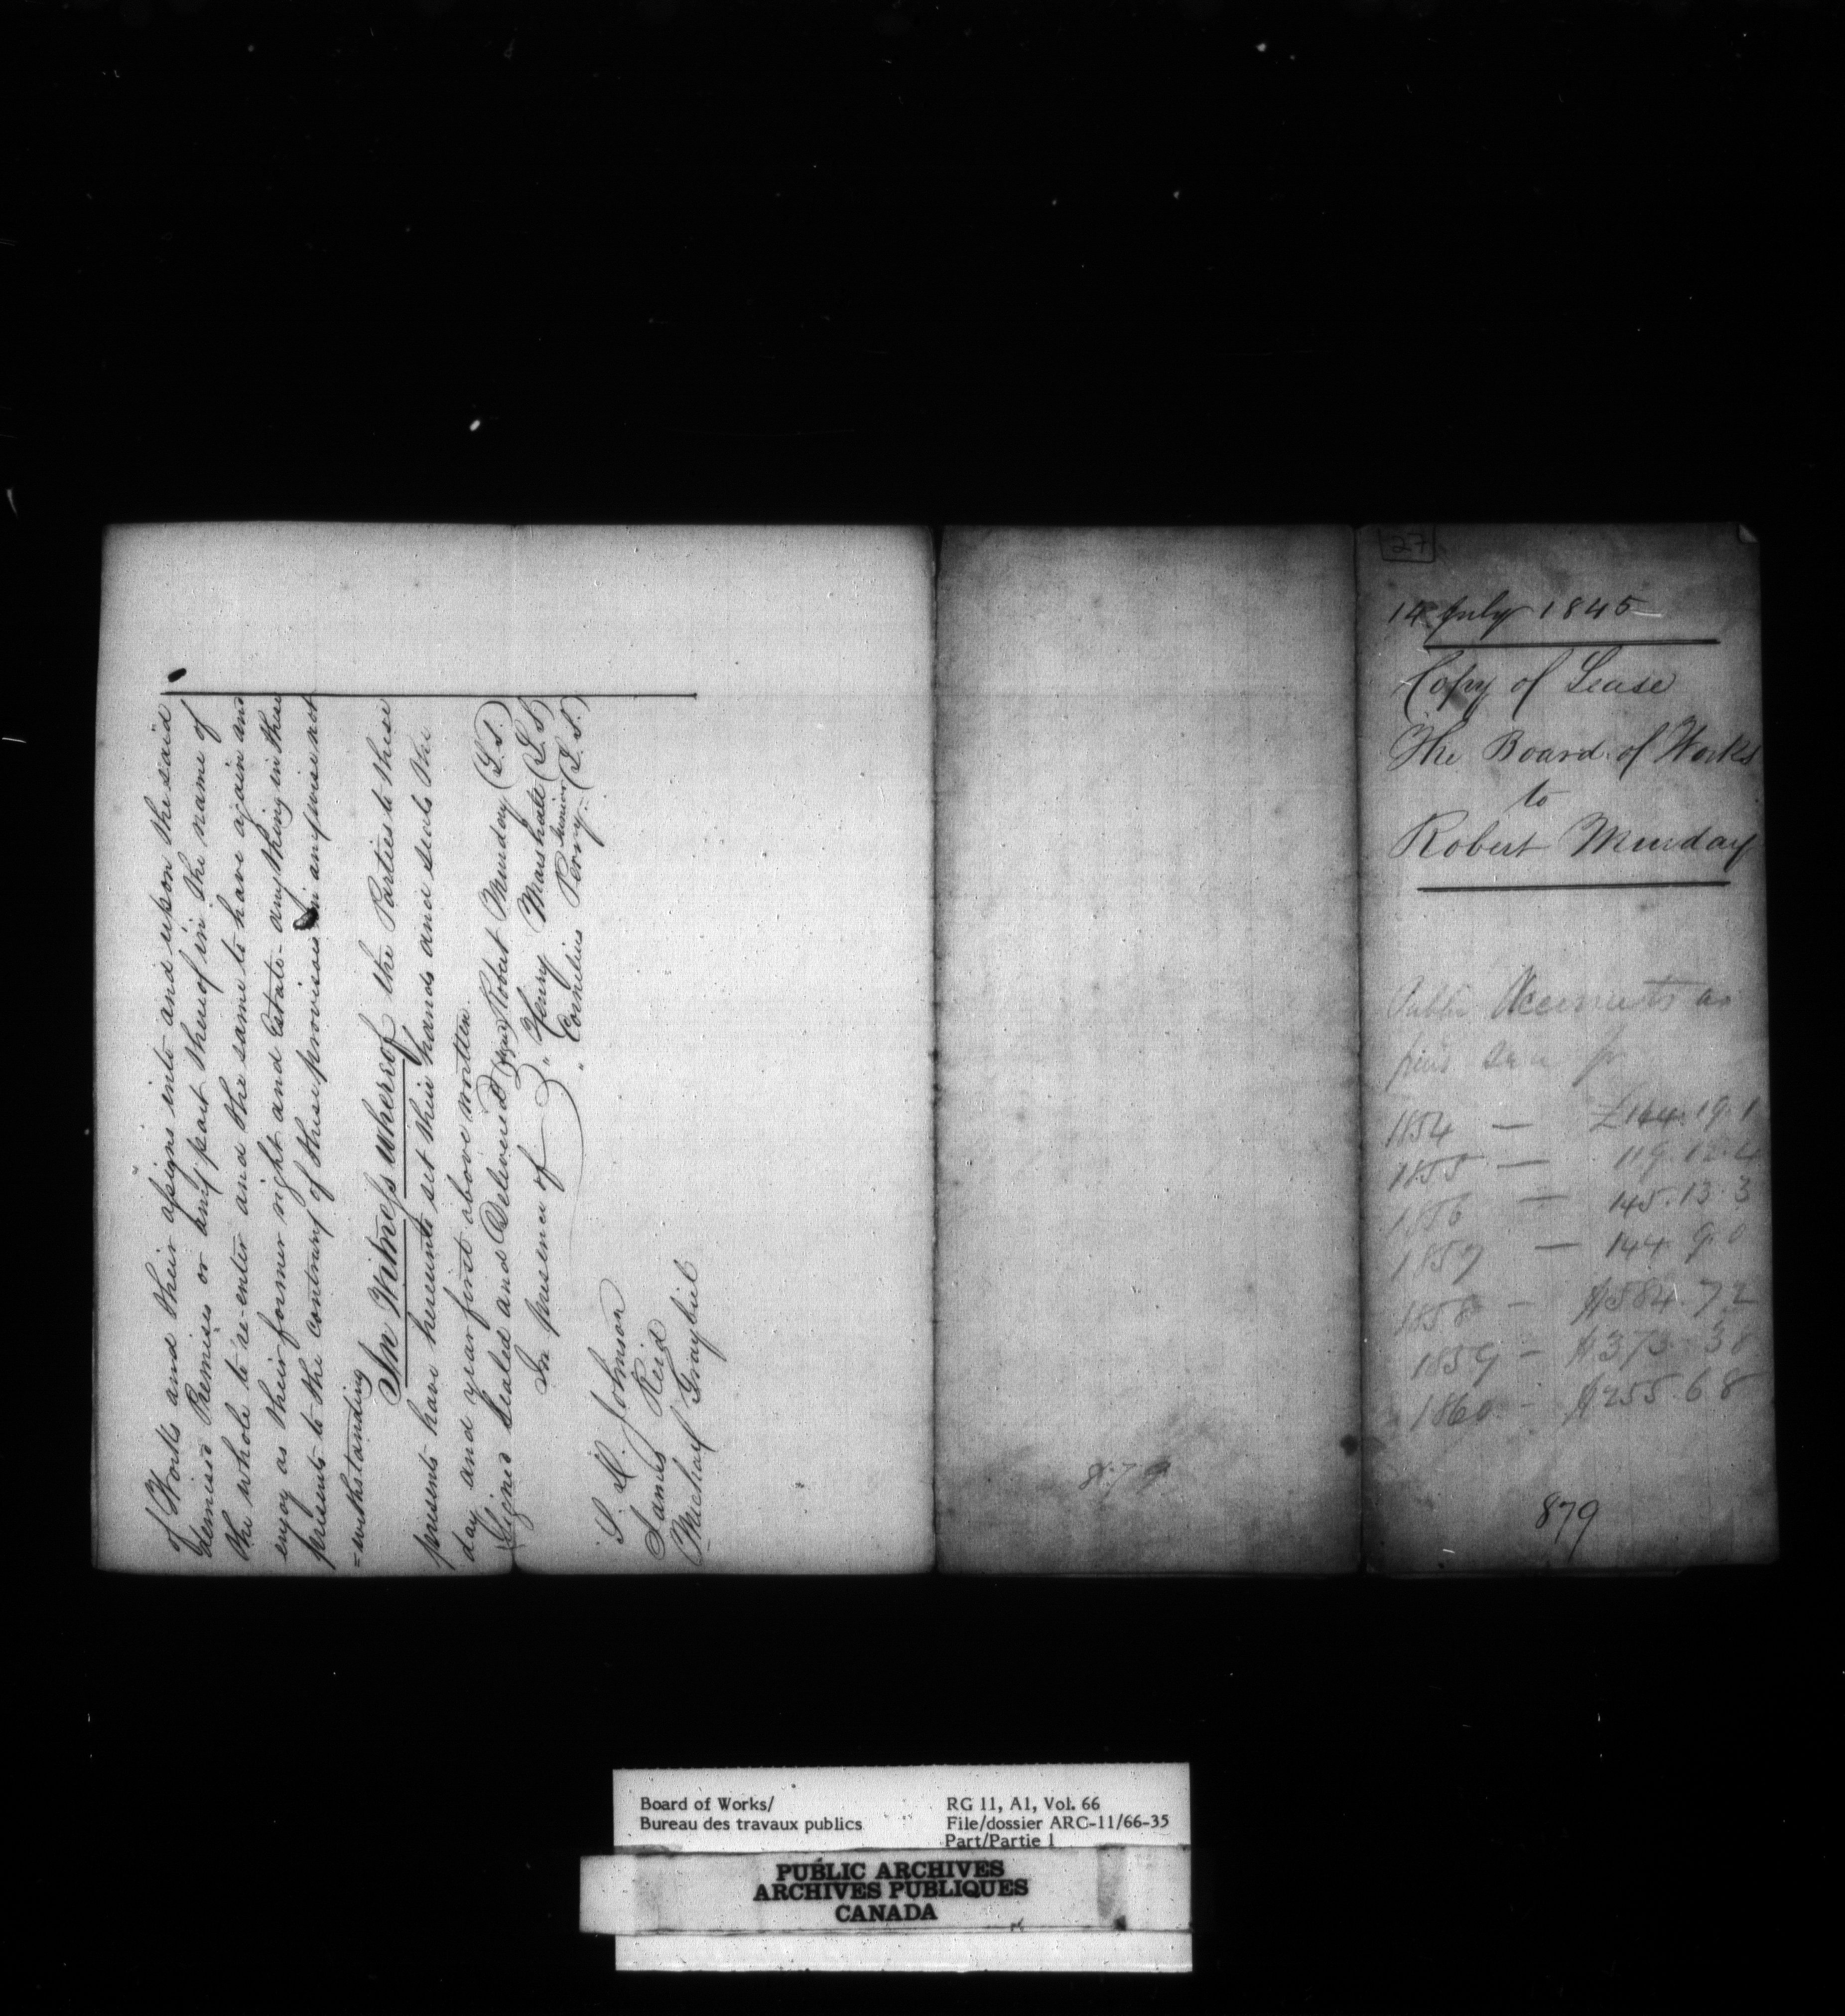 of Works and their assigns into and upon the said
demised Premises or any part thereof in the name of
the whole to re-enter and the same to have again and
enjoy as their former right and Estate - any thing in these
presents to the contrary of these provisions in anywise not
=withstanding
In Witness whereof the Parties to these
presents have hereunto set their hands and seals the
day and year first above written.
Signed Sealed and Delivered Robert Munday (L.S.)
In presence of " Henry Marshall (L.S.)
" Cornelius Perry Junior (L.S.)
S. D. Johnson
James Reid
Michael Graybiel
879
27
14 July 1845
Copy of Lease
The Board of Works
to
Robert Munday
Public Accounts as
1854 — £164.19.1
1855 — 119.12.4
1856 — 145.13.3
1857 — 144.9.0
1858 — $584.72
1859 — $373.38
1860 - $255.68
879
Board of Works/
Bureau des travaux publics
RG 11, A1, Vol. 66
File/dossier ARC-11/66-35
Part/Partie 1
PUBLIC ARCHIVES
ARCHIVES PUBLIQUES
CANADA